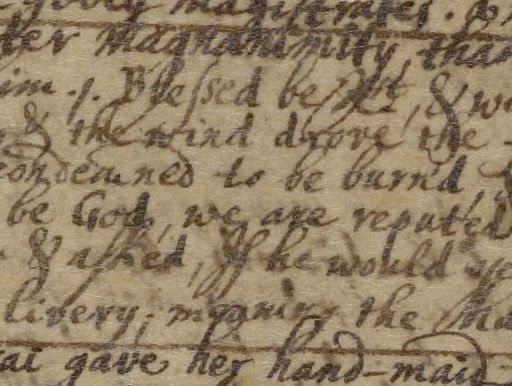 magistrates.
ter magnanimity, than
im. /. Blessed be
& the wind drove the
condemned to be burn'd,
be God, we are reputed
& asked, If he would ye
livery; meaning the
ai gave her hand-maid